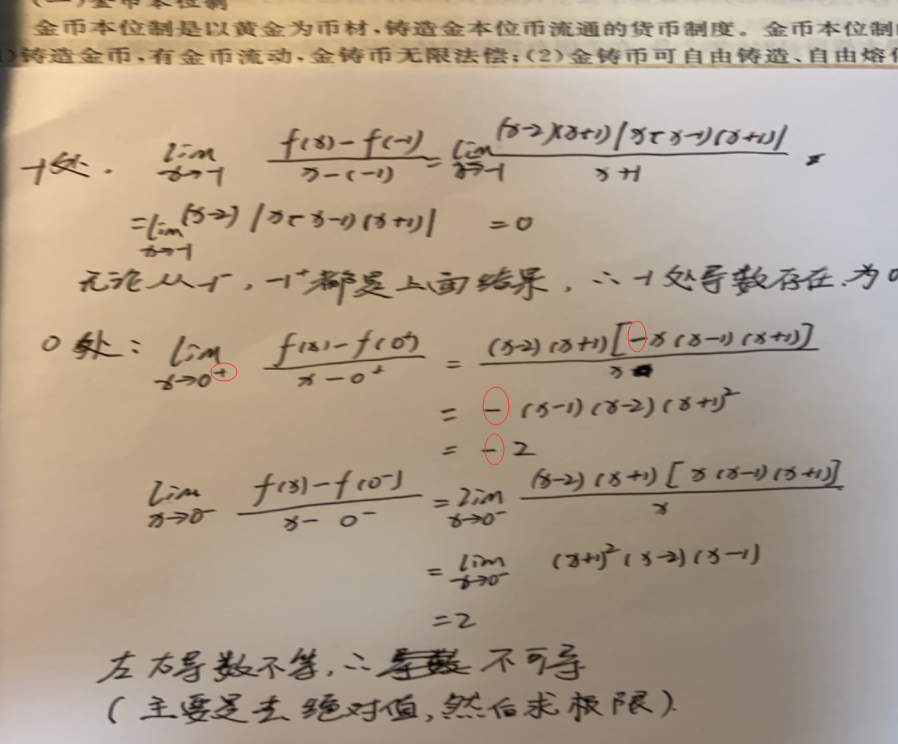 金币本位制是以黄金为币材,铸造金本位币流通的货币制度。金币本位制
)铸造金币,有金币流动,金铸币无限法偿;(2)金铸币可自由铸造、自由熔
-1处. lim x→-1 f(x)-f(-1) / x-(-1) = lim x→-1 (x-2)(x+1)|x(x-1)(x+1)| / x+1
= lim x→-1 (x-2)|x(x-1)(x+1)| =0
无论从-1⁻,-1⁺都是上面结果,∴-1处导数存在.为0
0处: lim x→0⁺ f(x)-f(0⁺) / x-0⁺ = (x-2)(x+1)[-x(x-1)(x+1)] / x
= -(x-1)(x-2)(x+1)²
= -2
lim x→0⁻ f(x)-f(0⁻) / x-0⁻ = lim x→0⁻ (x-2)(x+1)[x(x-1)(x+1)] / x
= lim x→0⁻ (x+1)²(x-2)(x-1)
=2
左右导数不等,∴不可导
(主要是去绝对值,然后求极限).